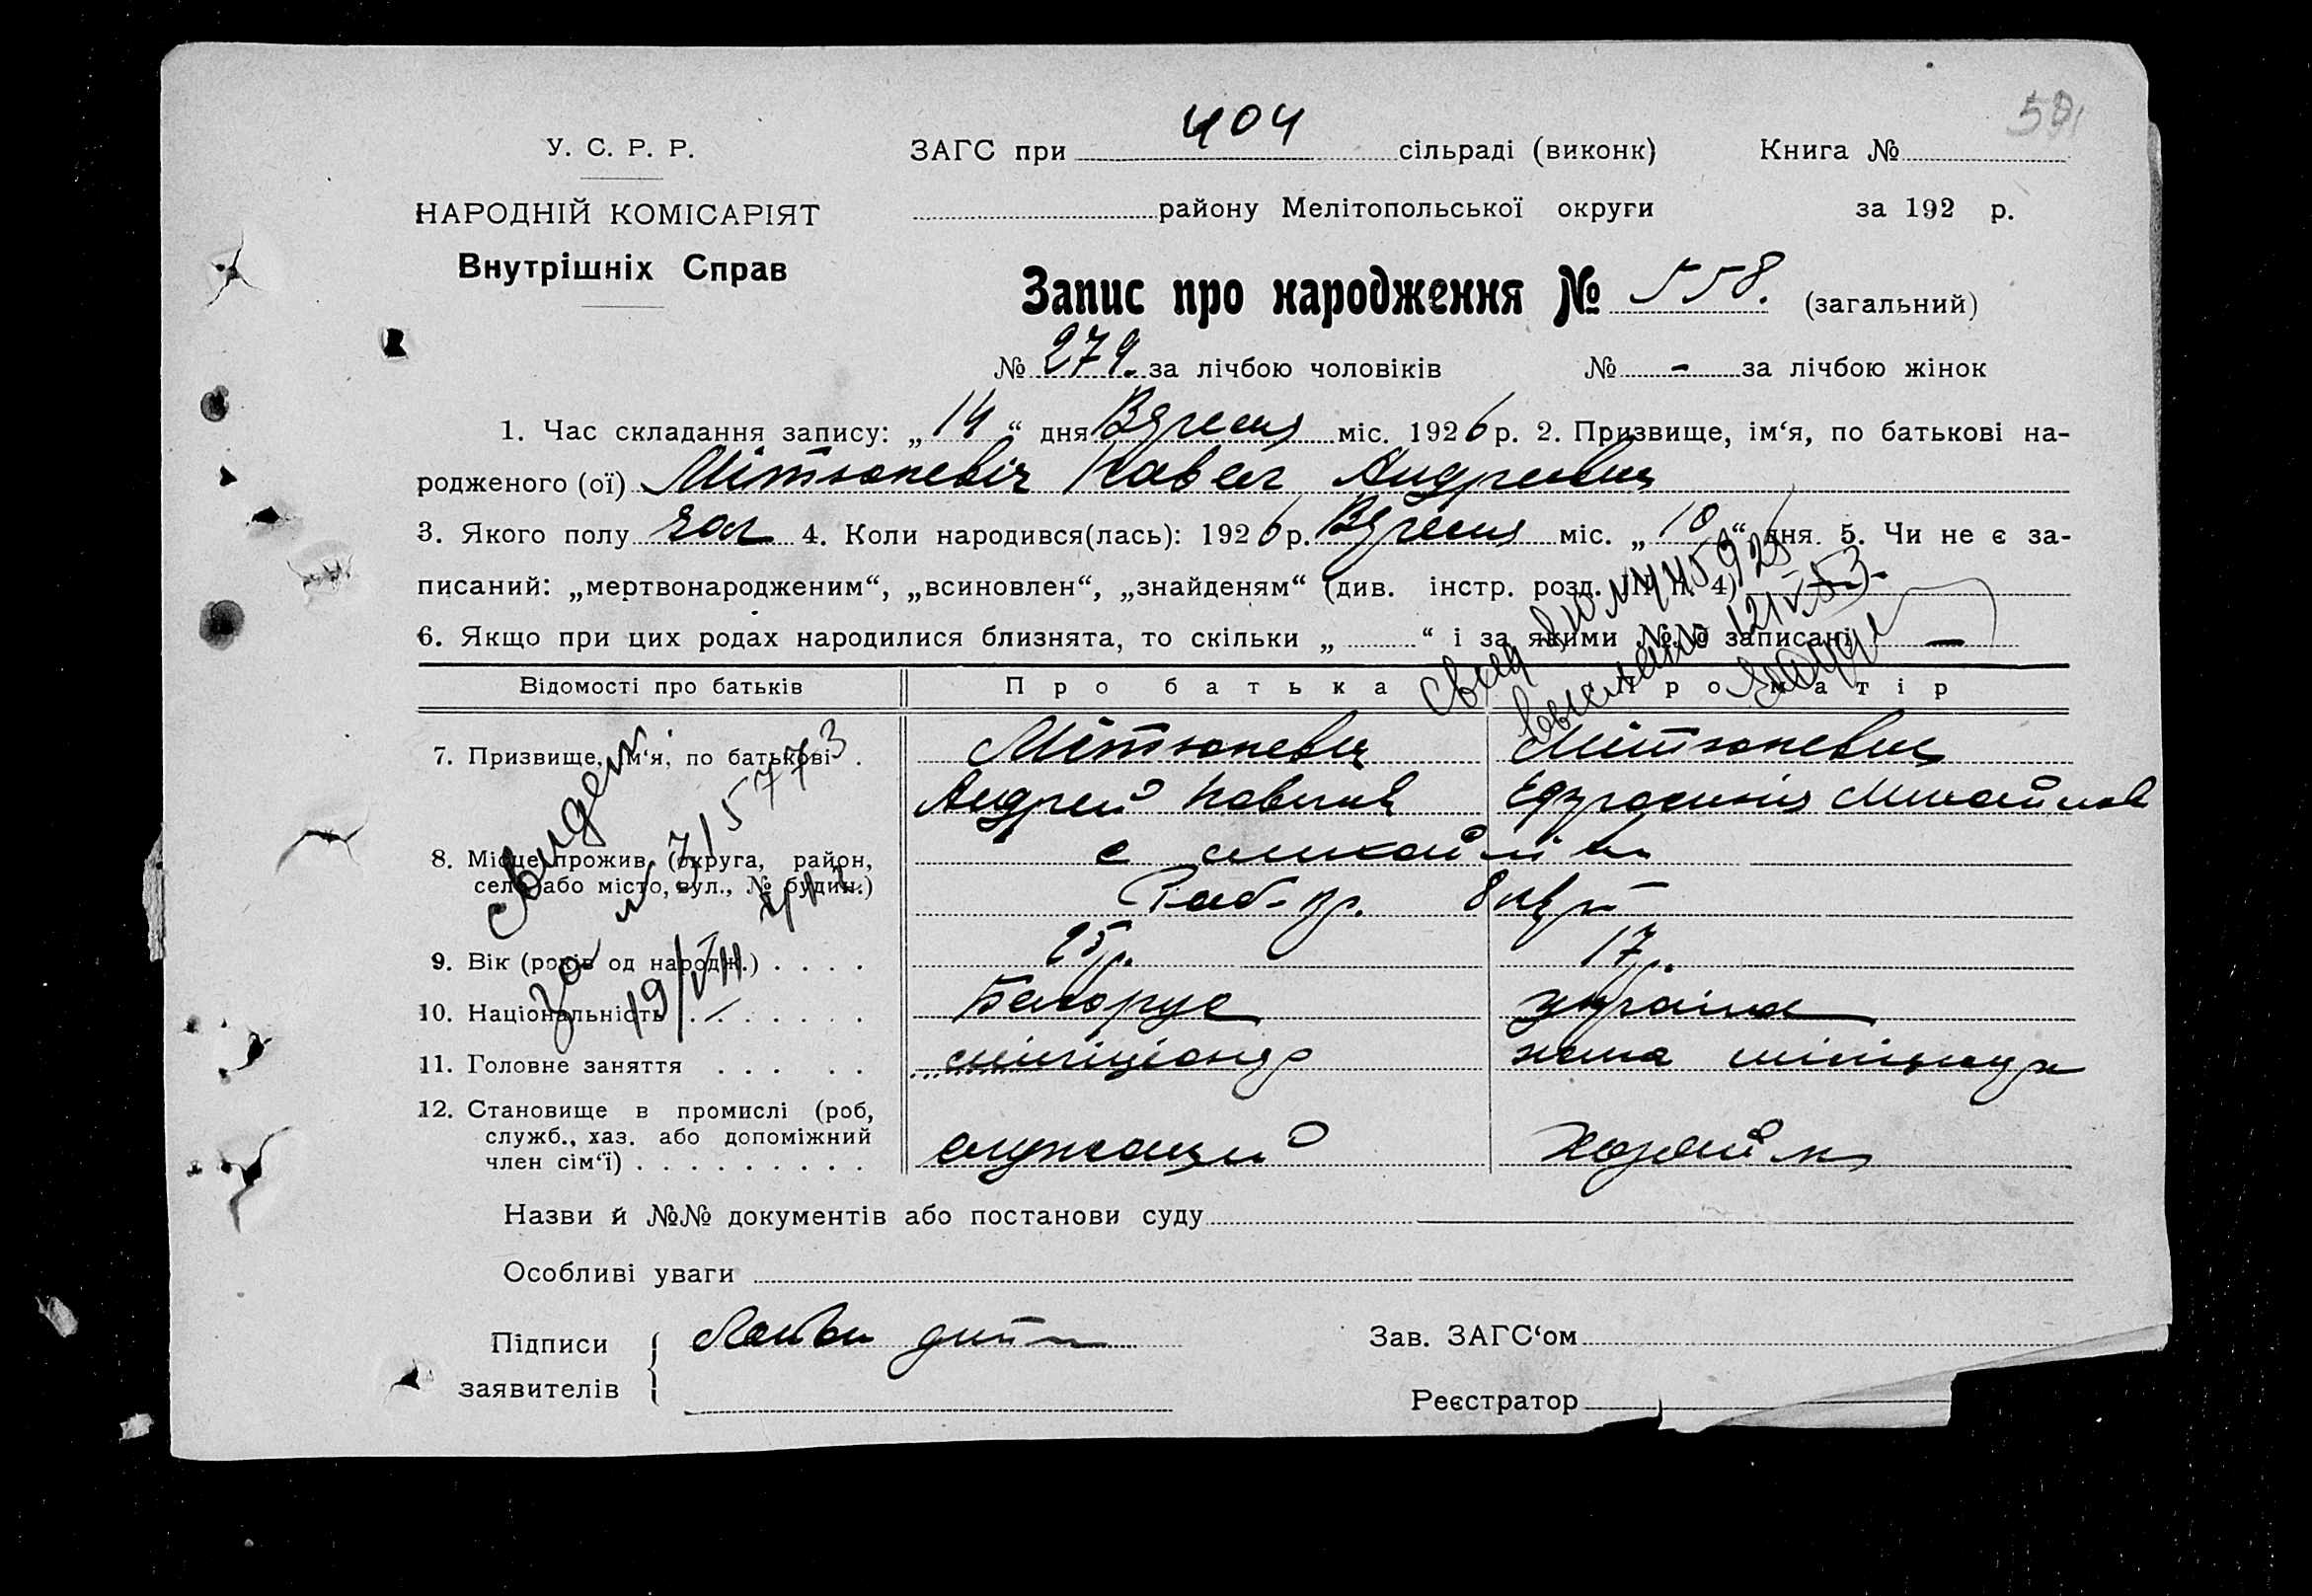 404
591
У. С. Р. Р.
ЗАГС при сільраді (виконк) Книга №
НАРОДНІЙ КОМІСАРІЯТ
району Мелітопольської округи за 192 р.
Внутрішніх Справ
Запис про народження № 558. (загальний)
№ 279. за лічбою чоловіків № - за лічбою жінок
1. Час складання запису: „14“ дня Вересня міс. 1926 р. 2. Призвище, ім‘я, по батькові на-
родженого (ої) Мітюкевіч Павел Андреевич
3. Якого полу чол 4. Коли народився(лась): 1926 р. Вересня міс. „10“ дня. 5. Чи не є за-
писаний: „мертвонародженим“, „всиновлен“, „знайденям“ (див. інстр. розд. IV п. 4)
6. Якщо при цих родах народилися близнята, то скільки „ “ і за якими №№ записані —
Відомості про батьків Про батька Про матір
7. Призвище, ім‘я, по батькові . Мітюкевич Мітюкевич
Андрей Павлов Михайлов
8. Місце прожив. (округа, район,
село або місто, вул., № будин.)
9. Вік (років од народж.) . . . . 25 р. 17 р.
10. Національність . . . . . . . Белорус україна
11. Головне заняття . . . . . міліціонер жена
12. Становище в промислі (роб,
служб., хаз. або допоміжний
член сім‘ї) . . . . . . . . . служащий
Назви й №№ документів або постанови суду
Особливі уваги
Підписи
заявителів
Зав. ЗАГС‘ом
Реєстратор
свид
выслано
Свидет
19/VII